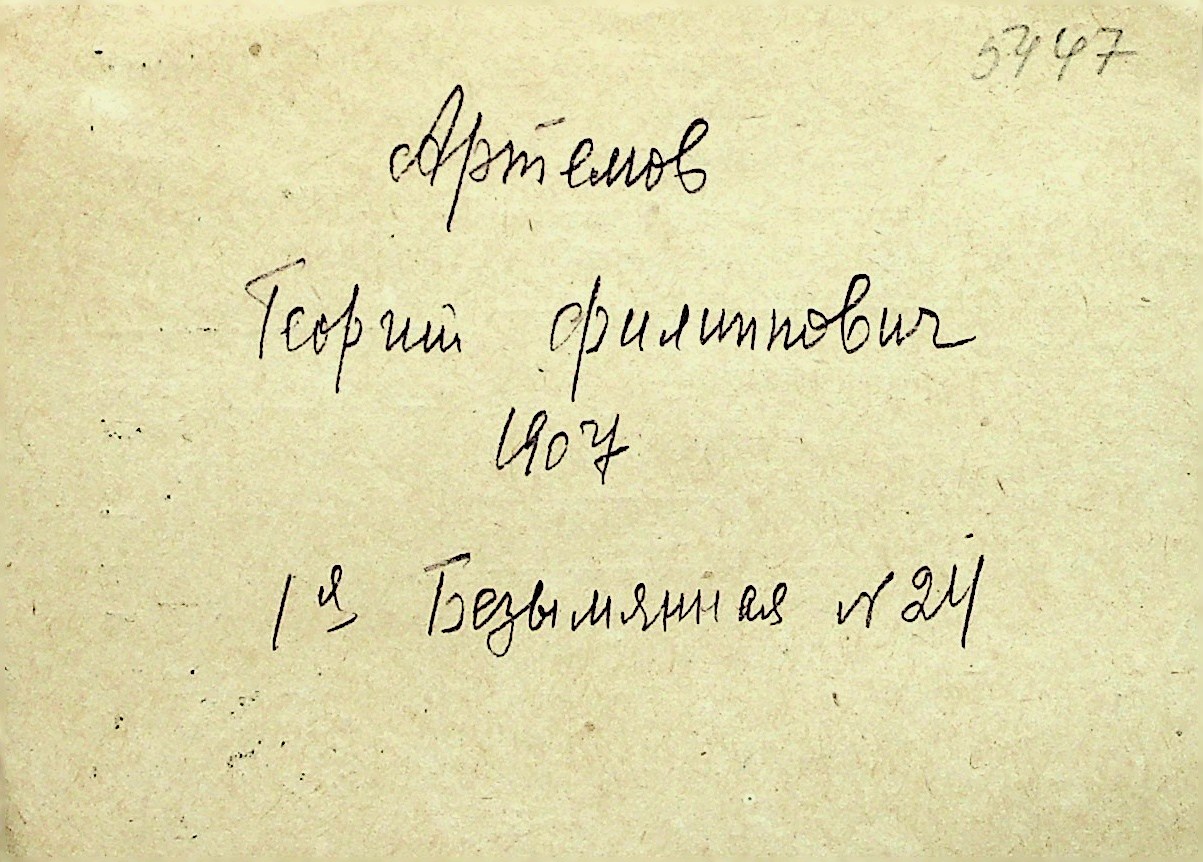 5447
Артемов
Георгий Филиппович
1907
1я Безымянная №24